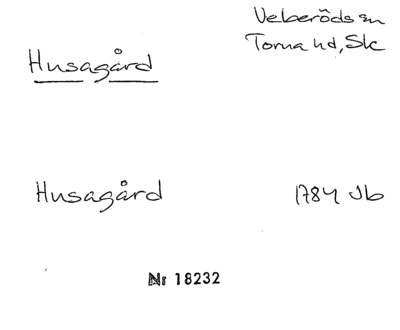 Veberöds sn
Torna hd, Sk
Husagård
Husagård 1784 Jb
Nr 18232